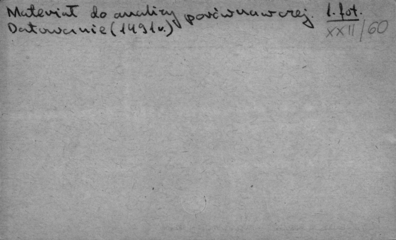 Materiał do analizy porównawczej. 1. fot.
Datowanie (1491 r.) XXII/60